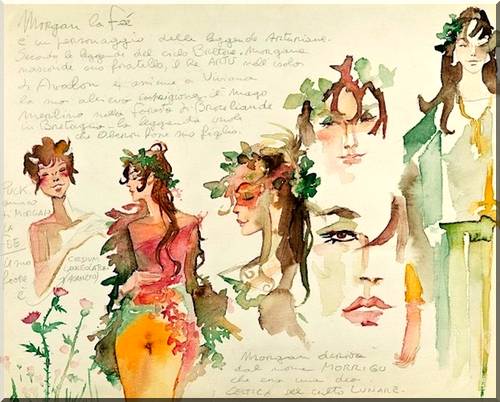 Morgan la Fée
è un personaggio delle leggende Arturiane.
Secondo le leggende del ciclo Bretone, Morgana
nasconde suo fratello, il Re ARTÙ nell'isola
di Avalon e assieme a Viviana
la sua allieva imprigiona il mago
Merlino nella foresta di Brocéliande
in Bretagna. La leggenda vuole
che Oberon fosse suo figlio.
PUCK
amico
di MORGAN
LA
FÉE
è
Morgan deriva
dal nome MORRIGU
che era una dea
CELTICA del culto LUNARE.